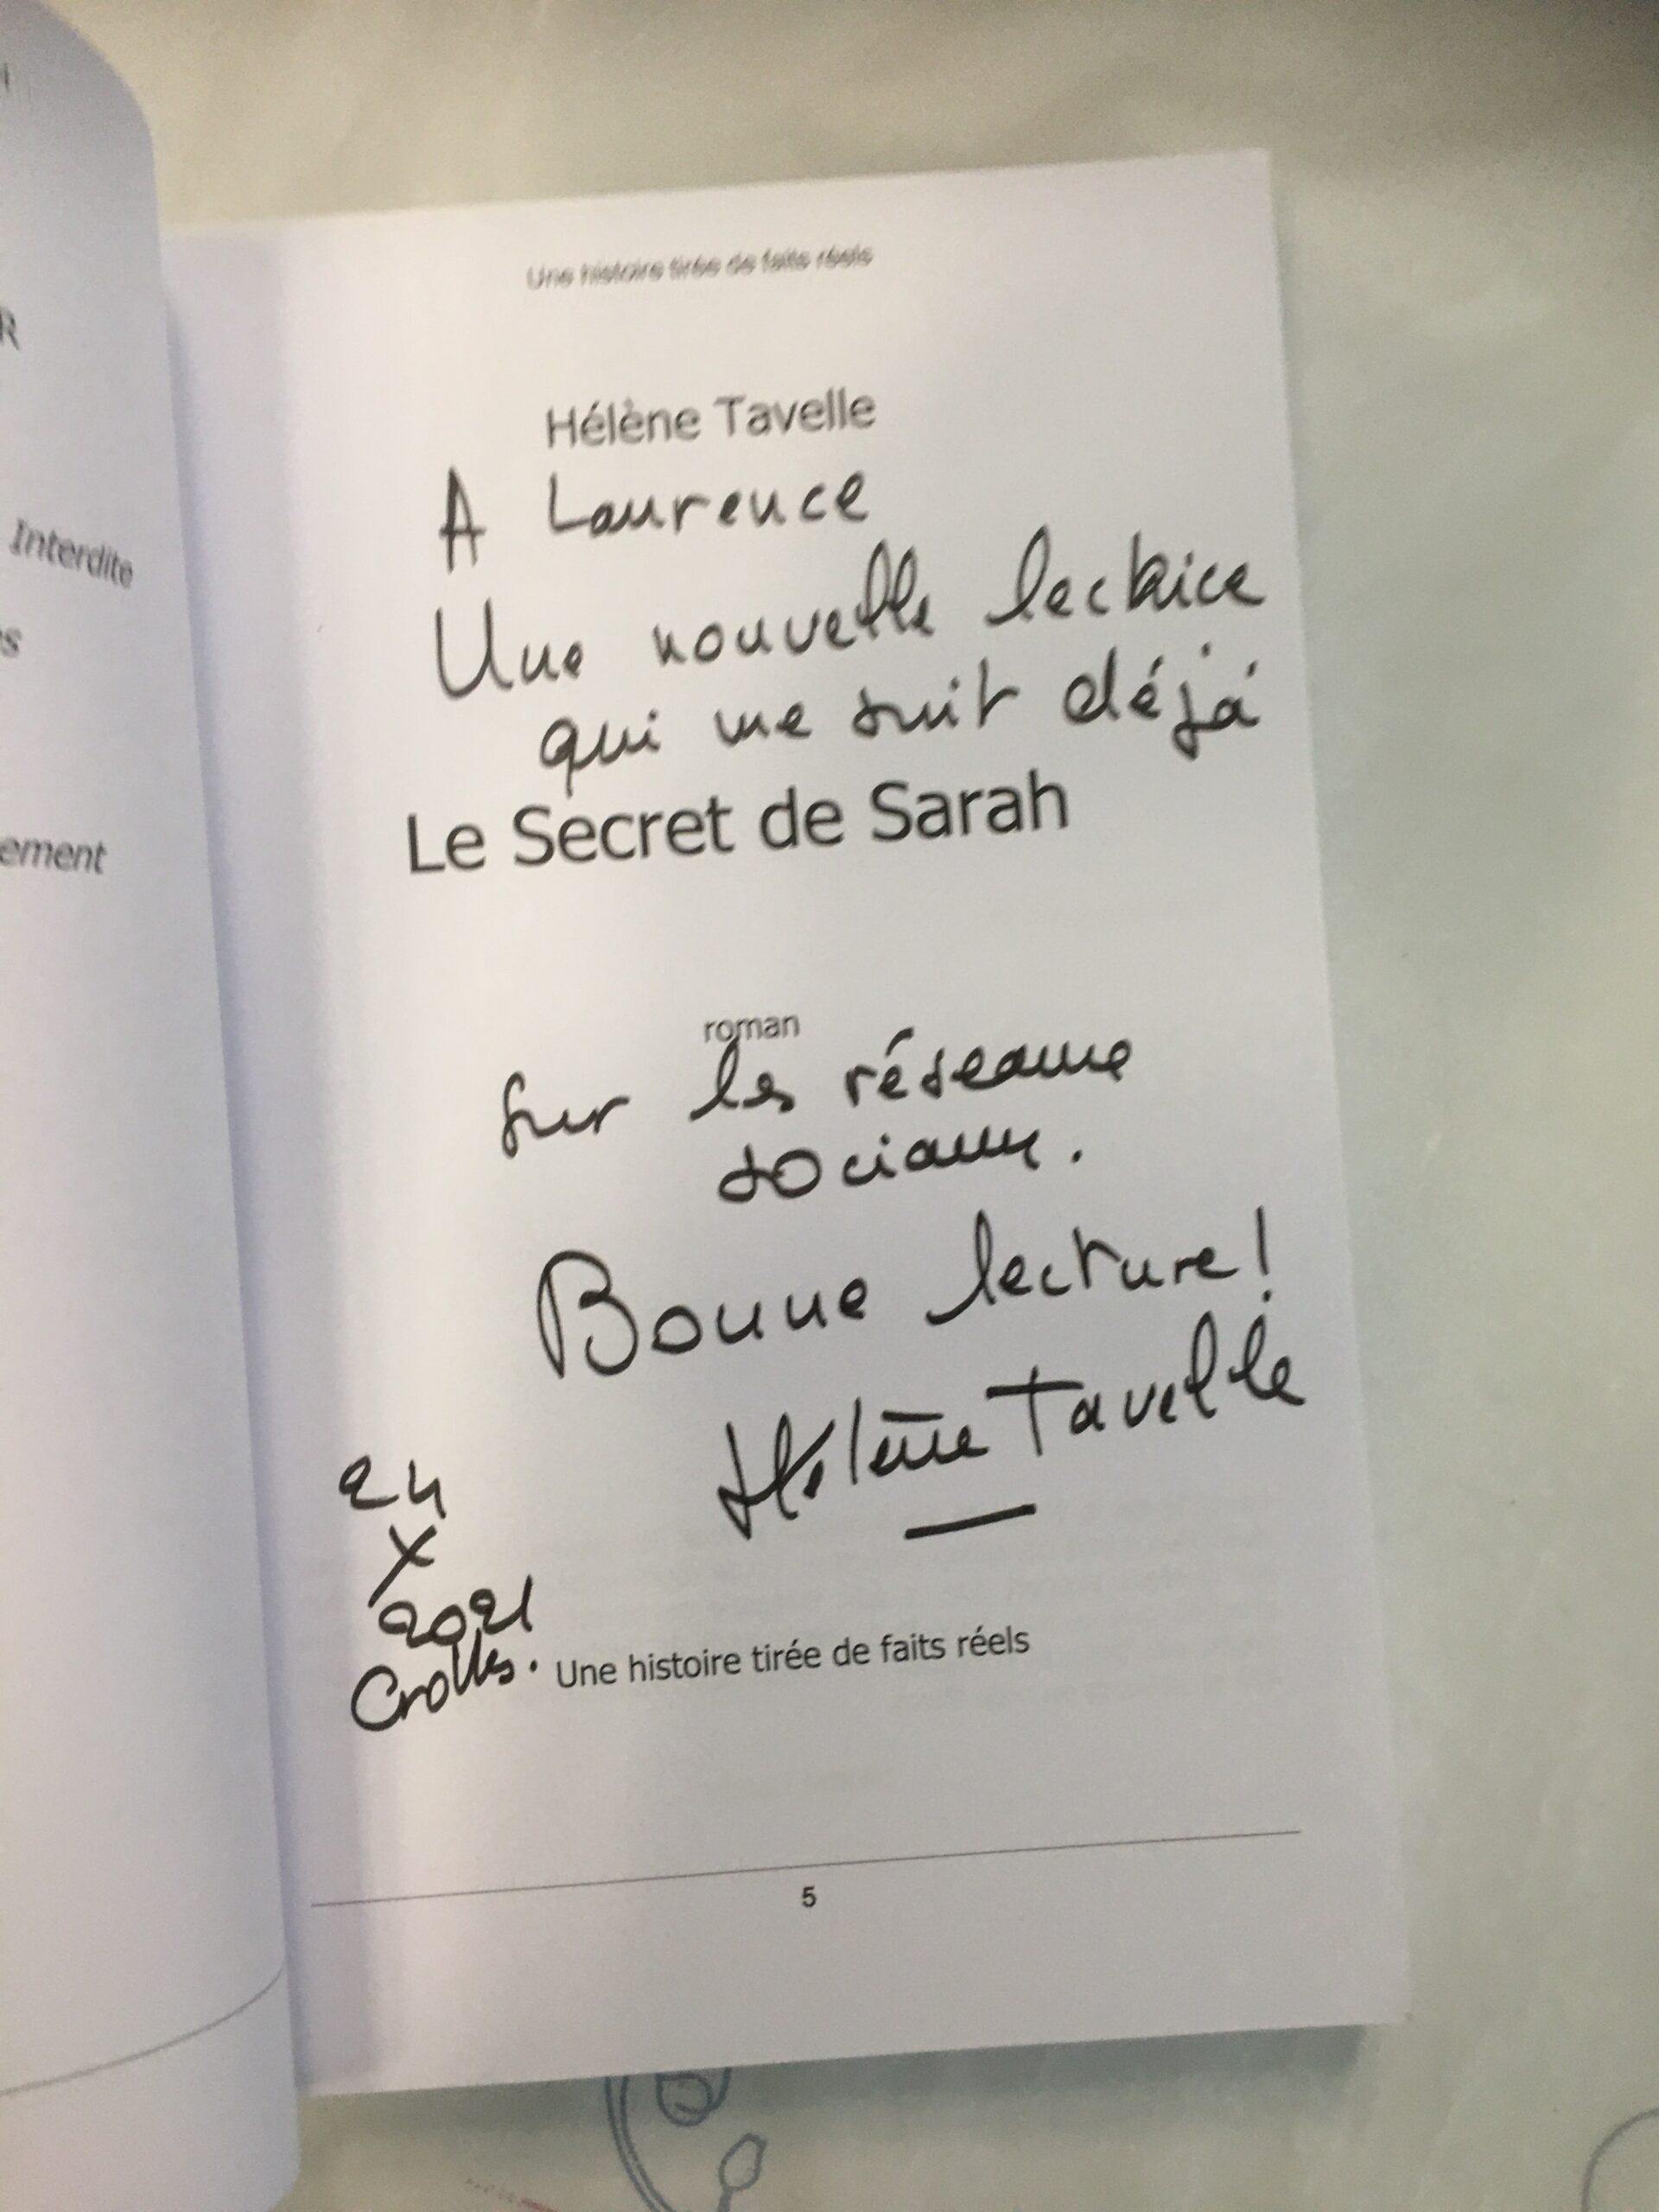 R
Interdite
s
ement
Une histoire tirée de faits réels
Hélène Tavelle
A Laurence
Une nouvelle lectrice
qui me suit déjà
Le Secret de Sarah
roman
Sur les réseaux
sociaux.
Bonne lecture!
Hélène Tavelle
24
X
2021
Crolles.
Une histoire tirée de faits réels
5